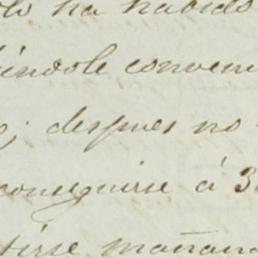 olo ha habido
iendole conveni
; despues no
conseguirse á 3
tirse mañana